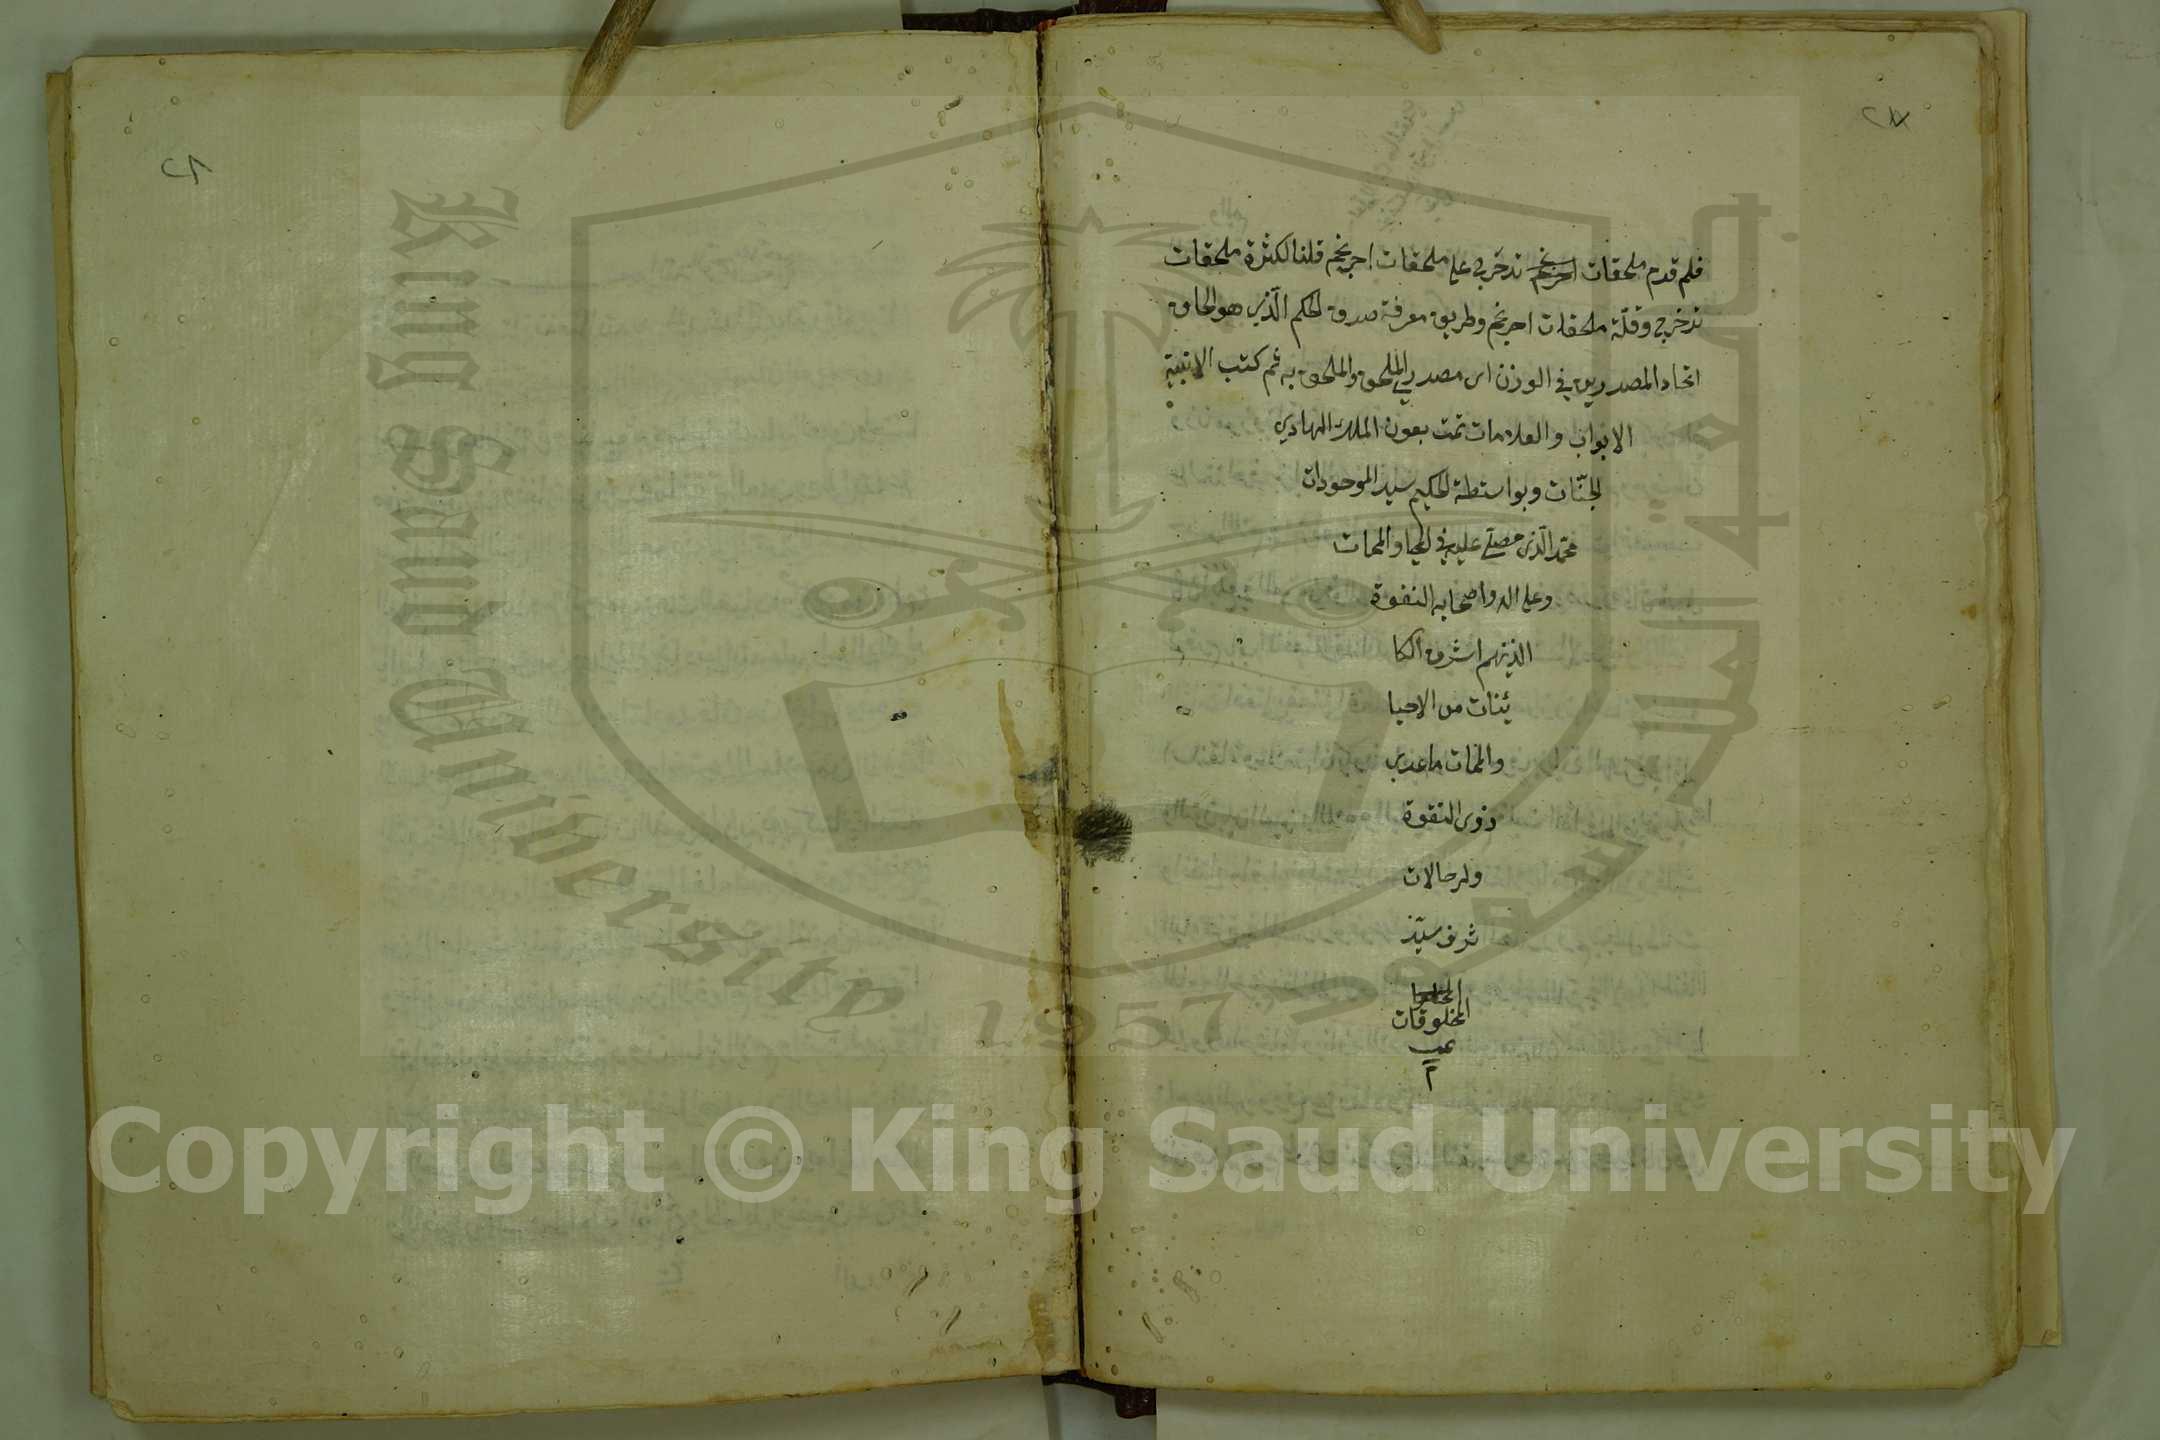 ٢٧
فلم قدم ملحقات احرنجم تدحرج على ملحقات احرنجم قلنا لكثرة ملحقات
تدحرج وقلّة ملحقات احرنجم وطريق معرفة صدق الحكم الّذي هو الحاق
اتحاد المصدرين في الوزن اى مصدري الملحق والملحق به ثم كتب الابنية
الابواب والعلامات تمت بعون الملك الهادي
الجنّات وبواسطة الحكيم سيد الموجودات
محمد الّذي عليه في المحيا والممات
وعلى اله واصحابه التقوة
الذينهم اشرف الكا
ئنات من الاحيا
والممات ماعدى
ذوى التقوة
ولرحالات
شرف سيّد
المخلوقات
م
٢٨
King Saud University
1957
جامعة الملك سعود
Copyright © King Saud University